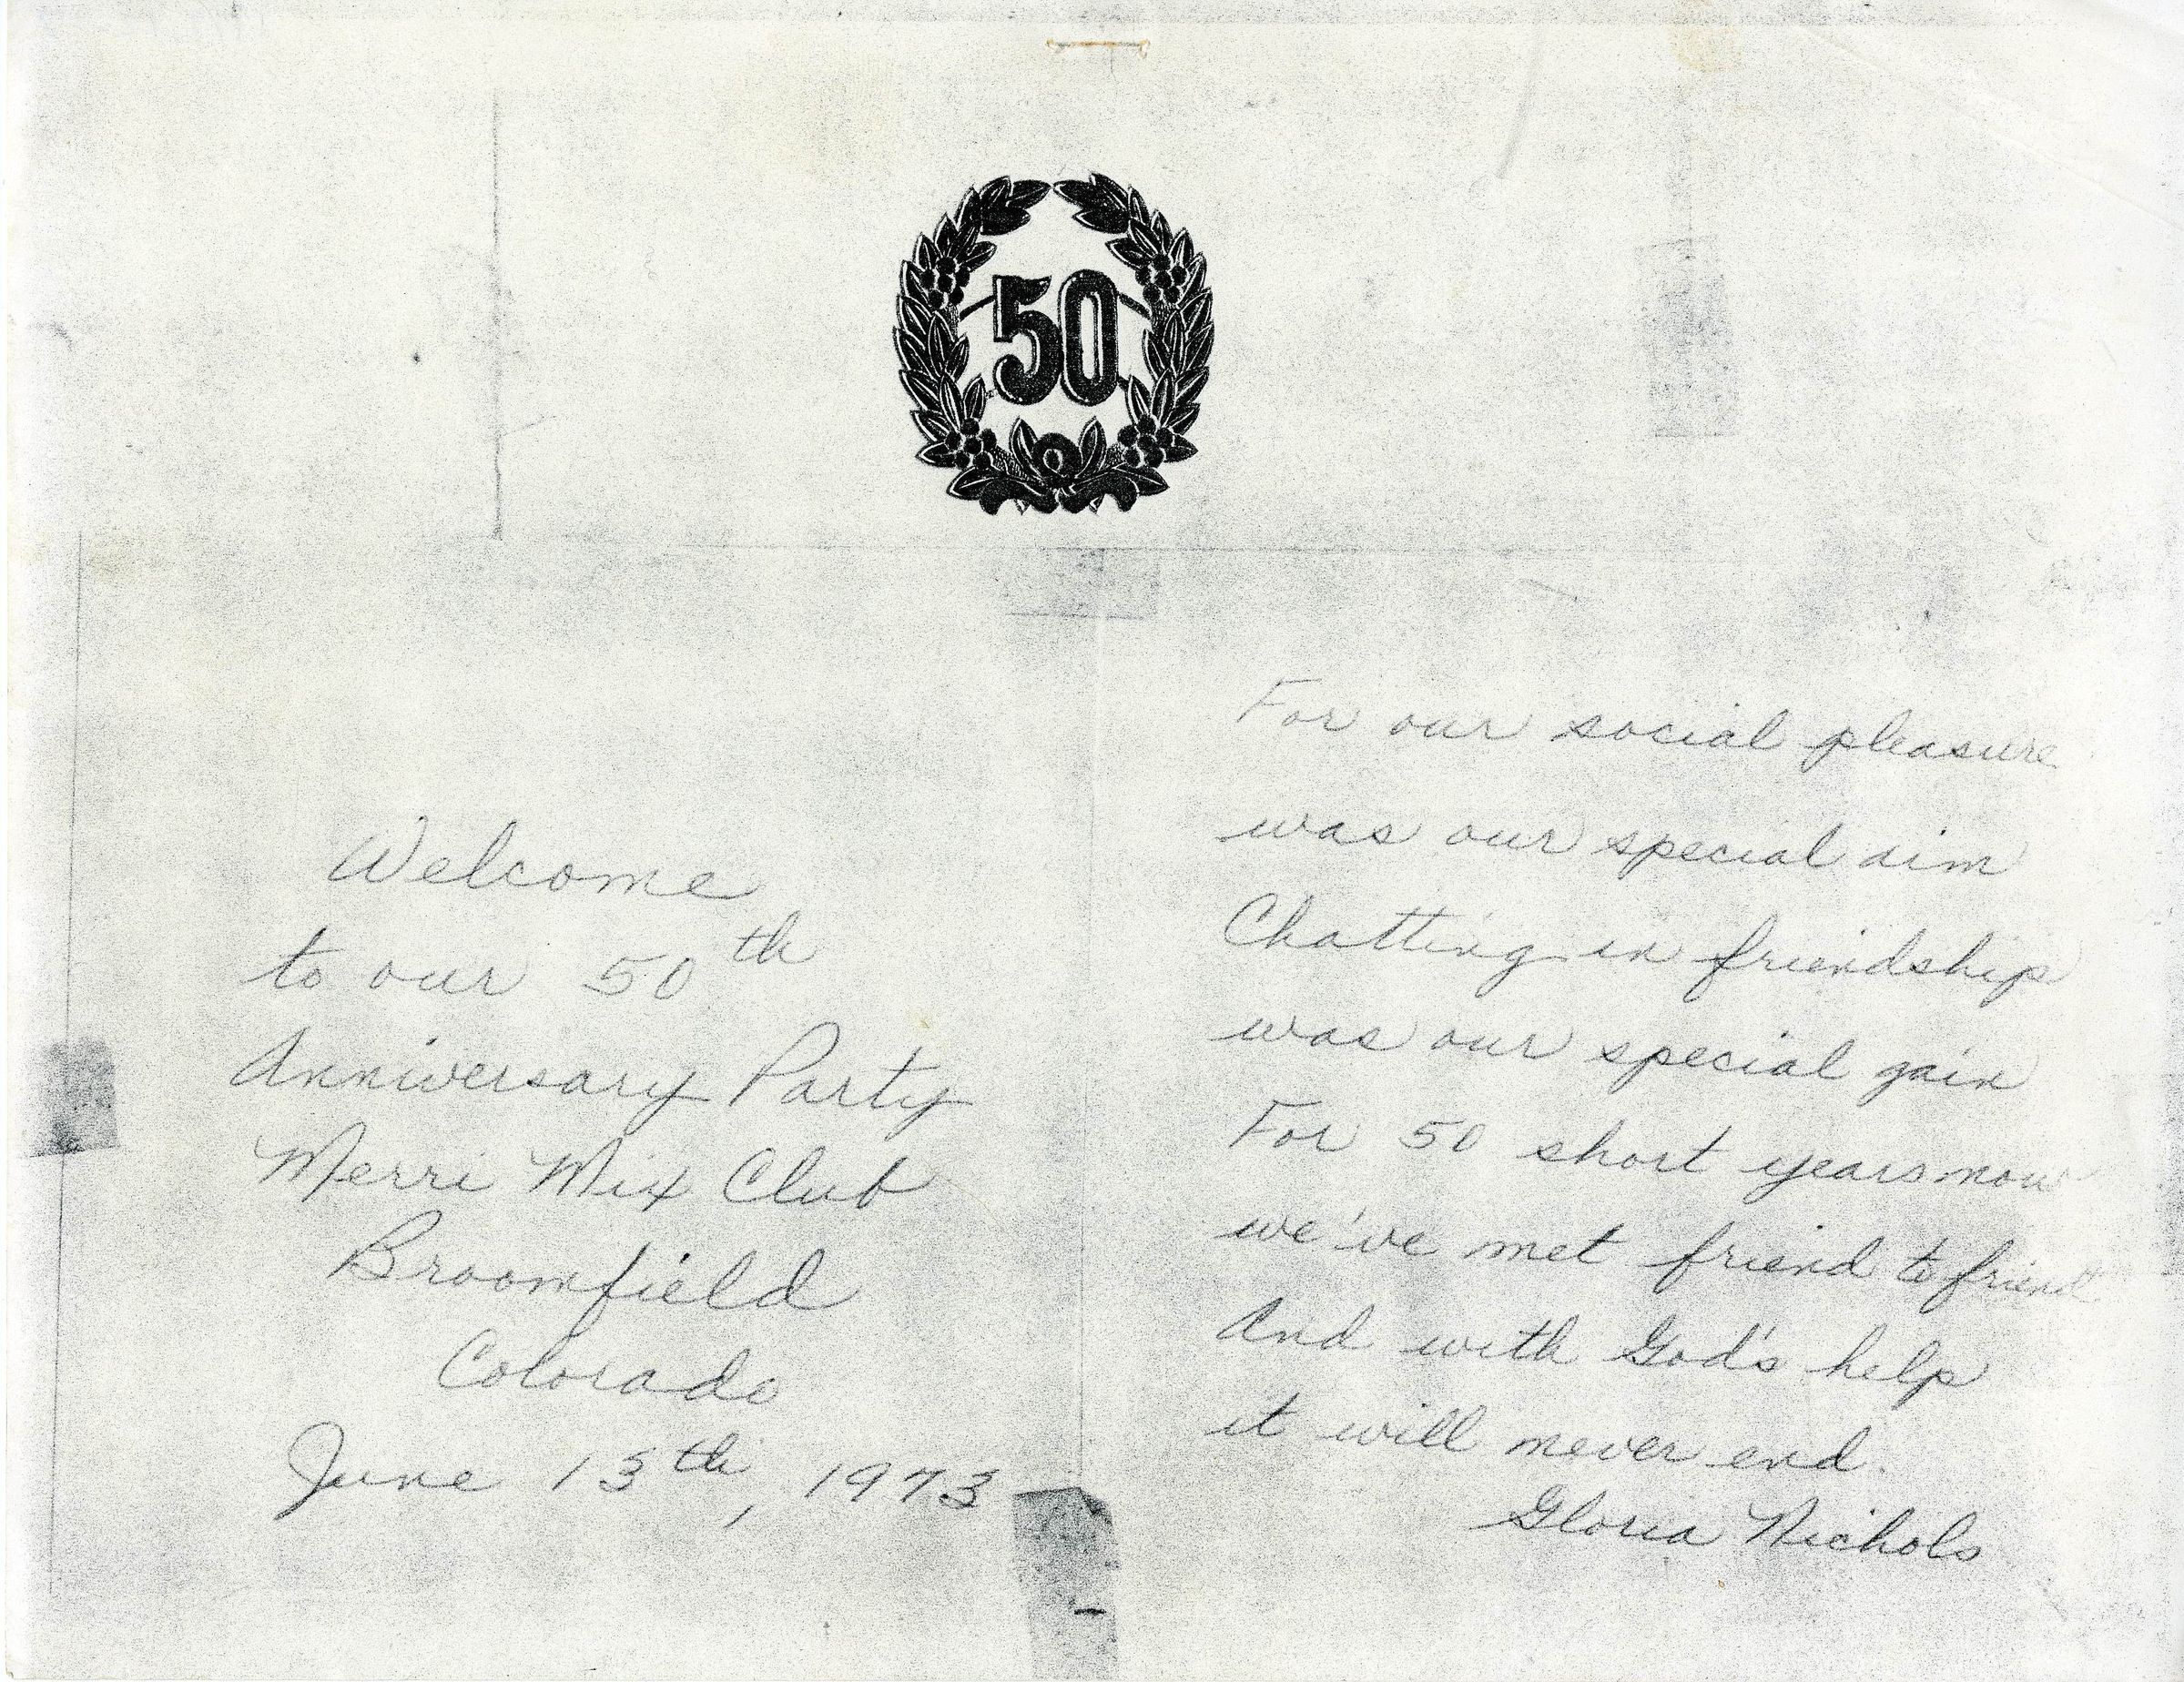 50
Welcome
to our 50th
Anniversary Party
Merri Mix Club
Broomfield
Colorado
June 13th, 1973
For our social pleasure
was our special aim
Chatting in friendship
was our special gain
For 50 short years now
we've met friend to friend
And with God's help
it will never end.
Gloria Nichols